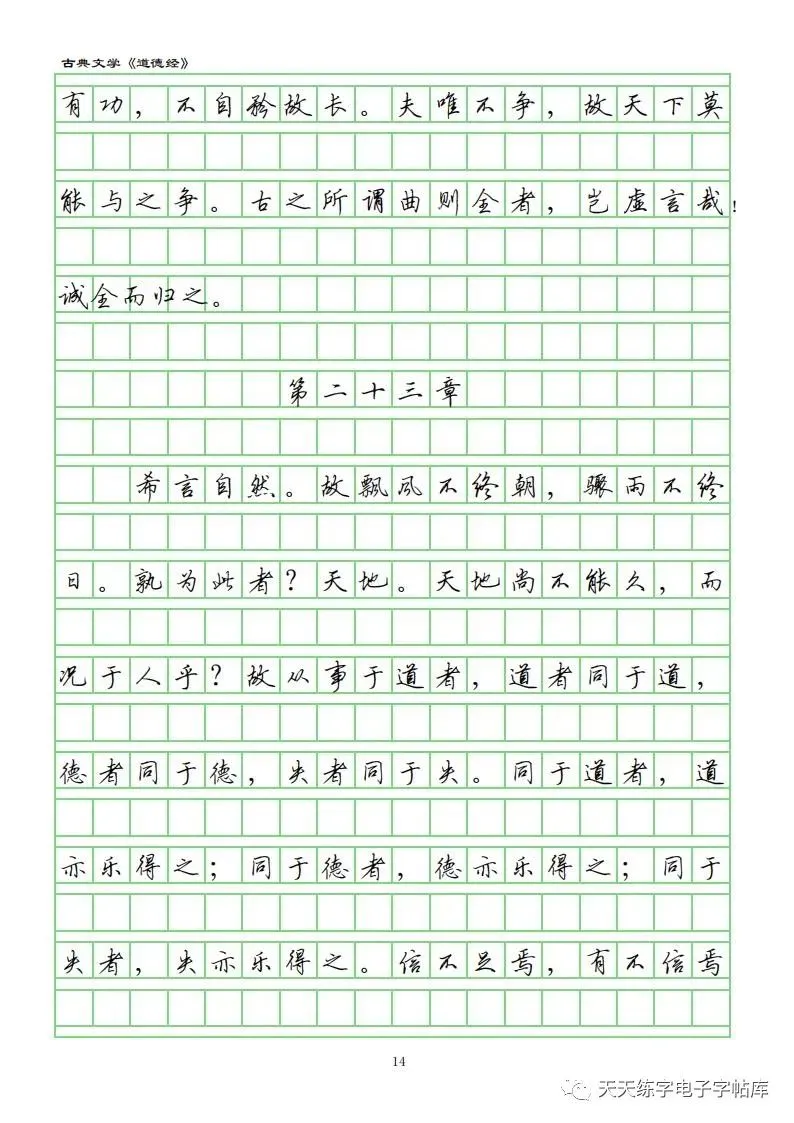 古典文学《道德经》
有功，不自矜故长。夫唯不争，故天下莫
能与之争。古之所谓曲则全者，岂虚言哉！
诚全而归之。
第二十三章
希言自然。故飘风不终朝，骤雨不终
日。孰为此者？天地。天地尚不能久，而
况于人乎？故从事于道者，道者同于道，
德者同于德，失者同于失。同于道者，道
亦乐得之；同于德者，德亦乐得之；同于
失者，失亦乐得之。信不足焉，有不信焉
14
天天练字电子字帖库